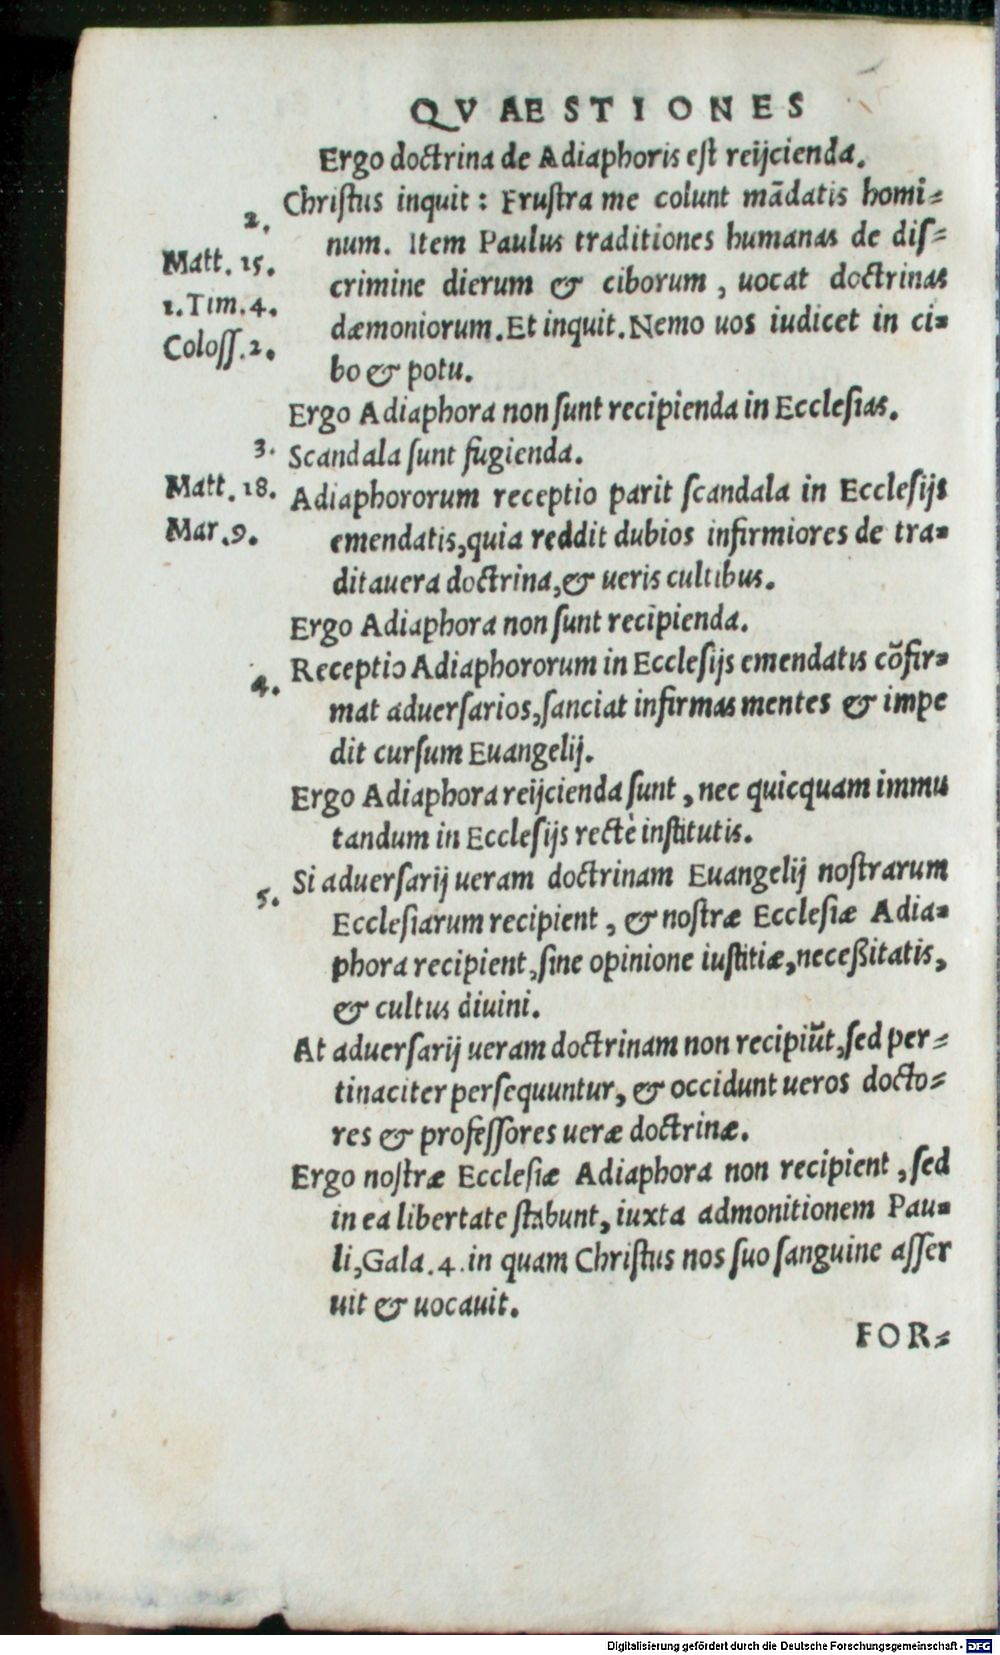 QVAESTIONES
Ergo doctrina de Adiaphoris est reijcienda.
2. Christus inquit: Frustra me colunt mādatis homi=
Matt. 15. num. Item Paulus traditiones humanas de dis=
1. Tim. 4. crimine dierum & ciborum, uocat doctrinas
Coloss. 2. dæmoniorum. Et inquit. Nemo uos iudicet in ci=
bo & potu.
Ergo Adiaphora non sunt recipienda in Ecclesias.
3. Scandala sunt fugienda.
Matt. 18. Adiaphororum receptio parit scandala in Ecclesijs
Mar. 9. emendatis, quia reddit dubios infirmiores de tra=
dita uera doctrina, & ueris cultibus.
Ergo Adiaphora non sunt recipienda.
4. Receptio Adiaphororum in Ecclesijs emendatis cōfir=
mat aduersarios, sanciat infirmas mentes & impe
dit cursum Euangelij.
Ergo Adiaphora reijcienda sunt, nec quicquam immu
tandum in Ecclesijs rectè institutis.
5. Si aduersarij ueram doctrinam Euangelij nostrarum
Ecclesiarum recipient, & nostræ Ecclesiæ Adia=
phora recipient, sine opinione iustitiæ, neceßitatis,
& cultus diuini.
At aduersarij ueram doctrinam non recipiūt, sed per=
tinaciter persequuntur, & occidunt ueros docto=
res & professores ueræ doctrinæ.
Ergo nostræ Ecclesiæ Adiaphora non recipient, sed
in ea libertate stabunt, iuxta admonitionem Pau=
li, Gala. 4. in quam Christus nos suo sanguine asser
uit & uocauit.
FOR=
Digitalisierung gefördert durch die Deutsche Forschungsgemeinschaft - DFG